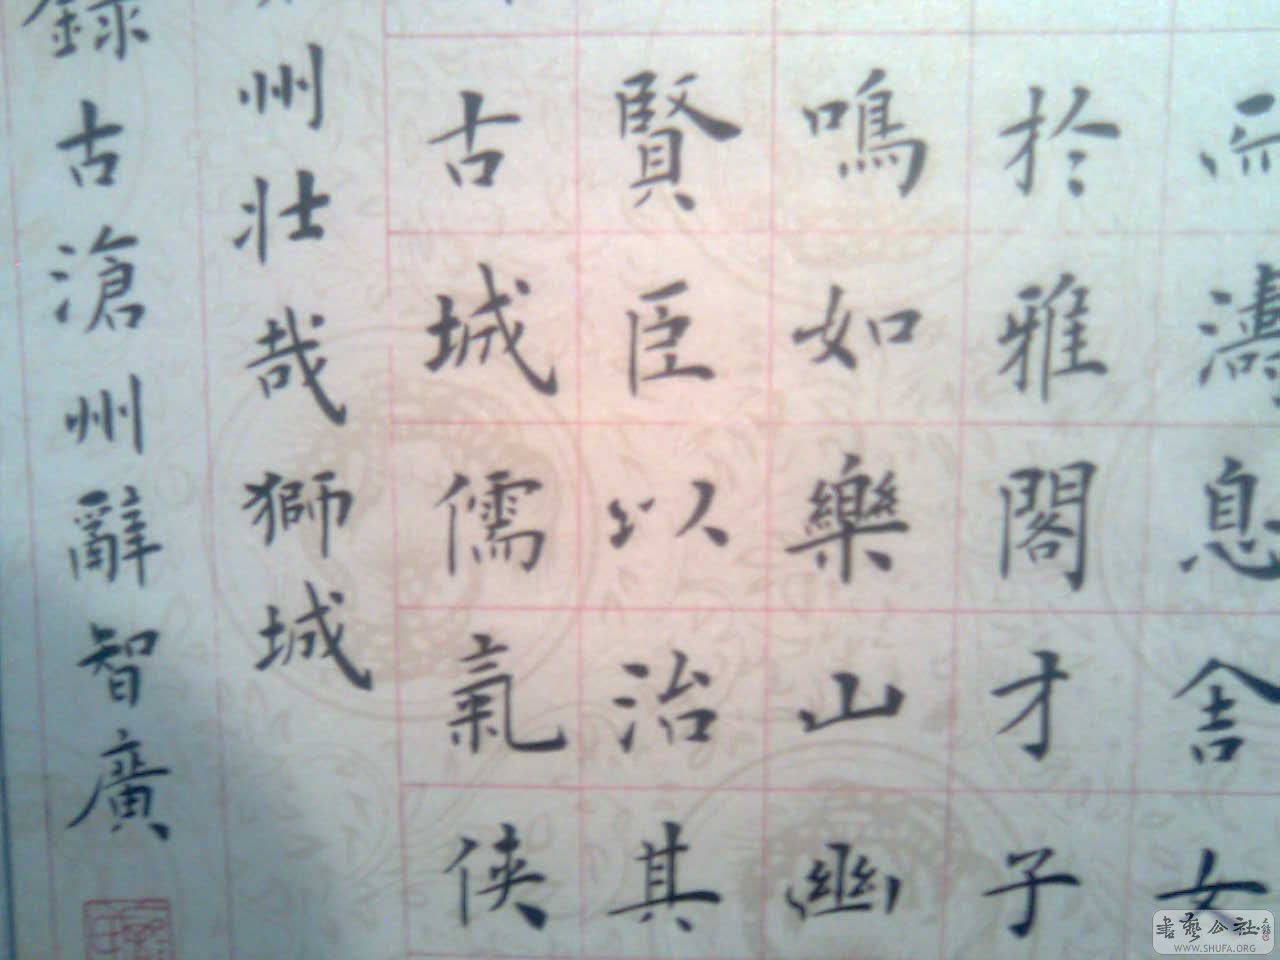 而濤息舍女
於雅閣才子
鳴如樂山幽
賢臣以治其
古城儒氣俠
州壯哉獅城
錄古滄州辭智廣
書藝公社
WWW.SHUFA.ORG